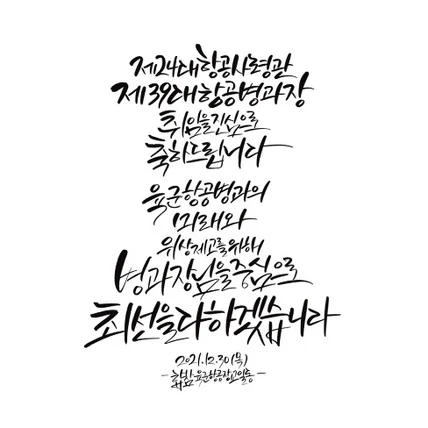 제24대항공사령관
제39대항공병과장
취임을진심으로
축하드립니다
육군항공병과의
미래와
위상제고를위해
병과장님을중심으로
최선을다하겠습니다
2021.12.30(목)
육군항공장교일동-